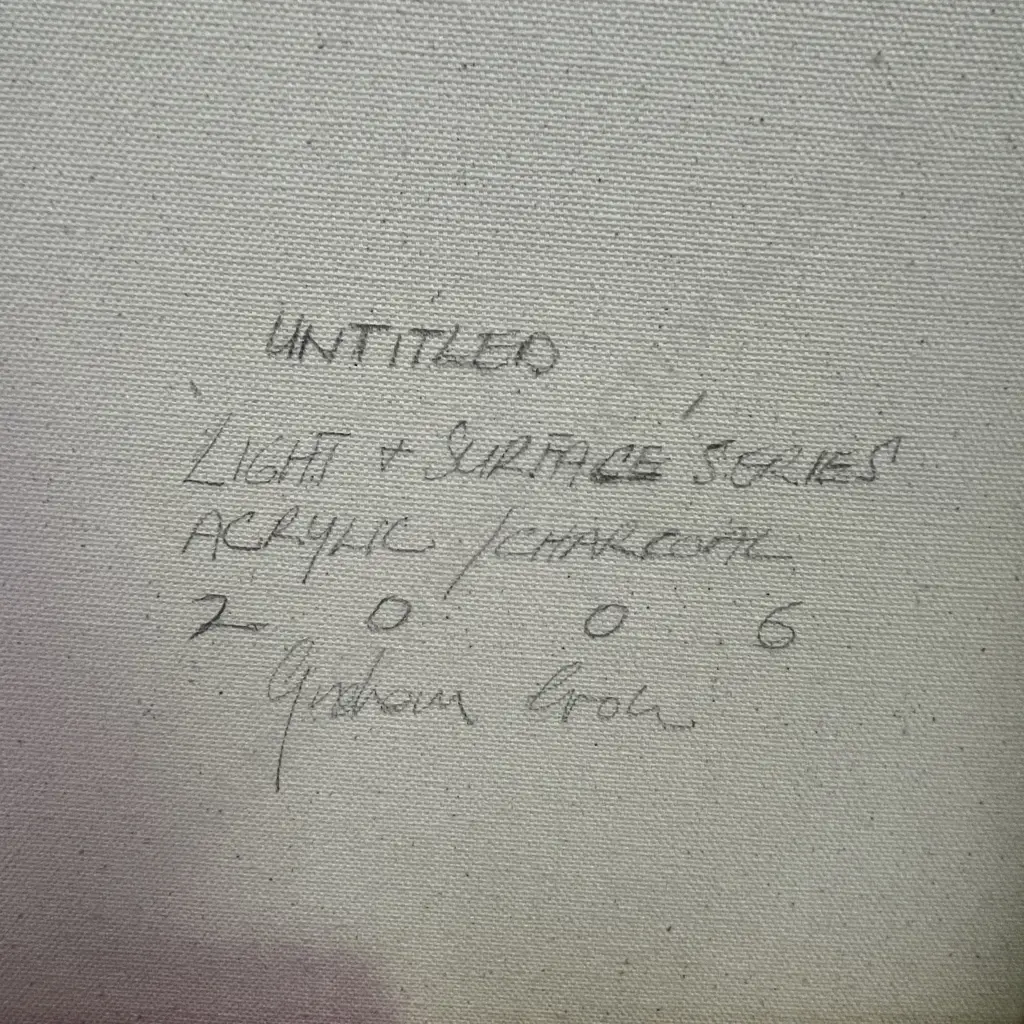 UNTITLED
'LIGHT + SURFACE' SERIES
ACRYLIC / CHARCOAL
2 0 0 6
Graham